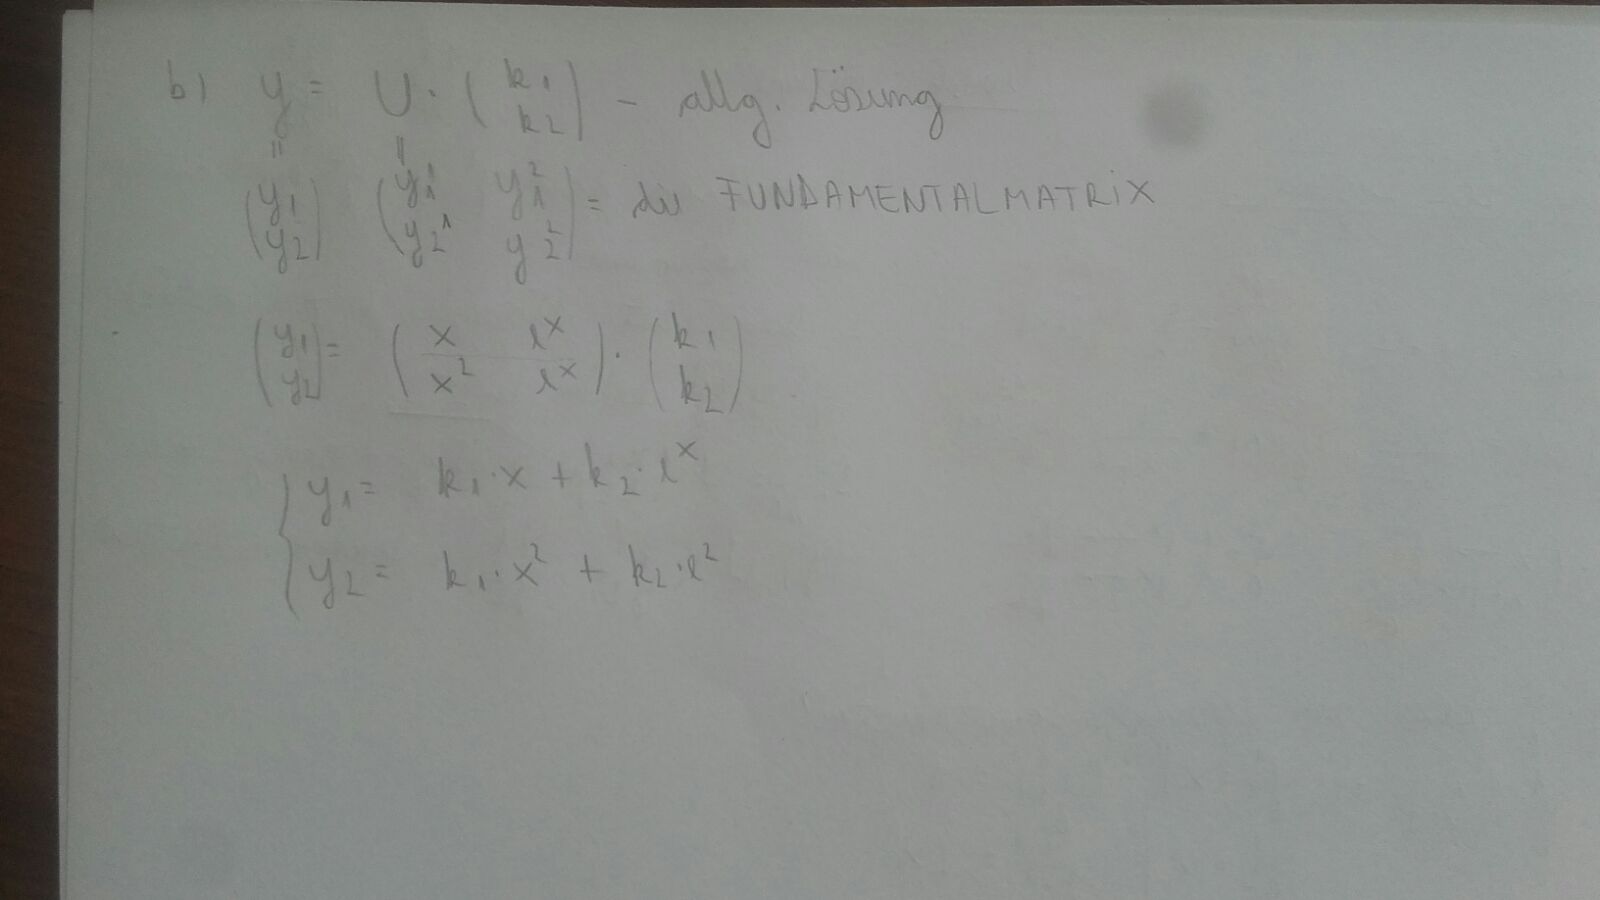 b) y = U · (k1 k2) - allg. Lösung
(y1 y2) (y1^1 y1^2 y2^1 y2^2) = die FUNDAMENTALMATRIX
(y1 y2) = (x e^x x^2 e^x) · (k1 k2)
y1 = k1 · x + k2 · e^x
y2 = k1 · x^2 + k2 · e^2